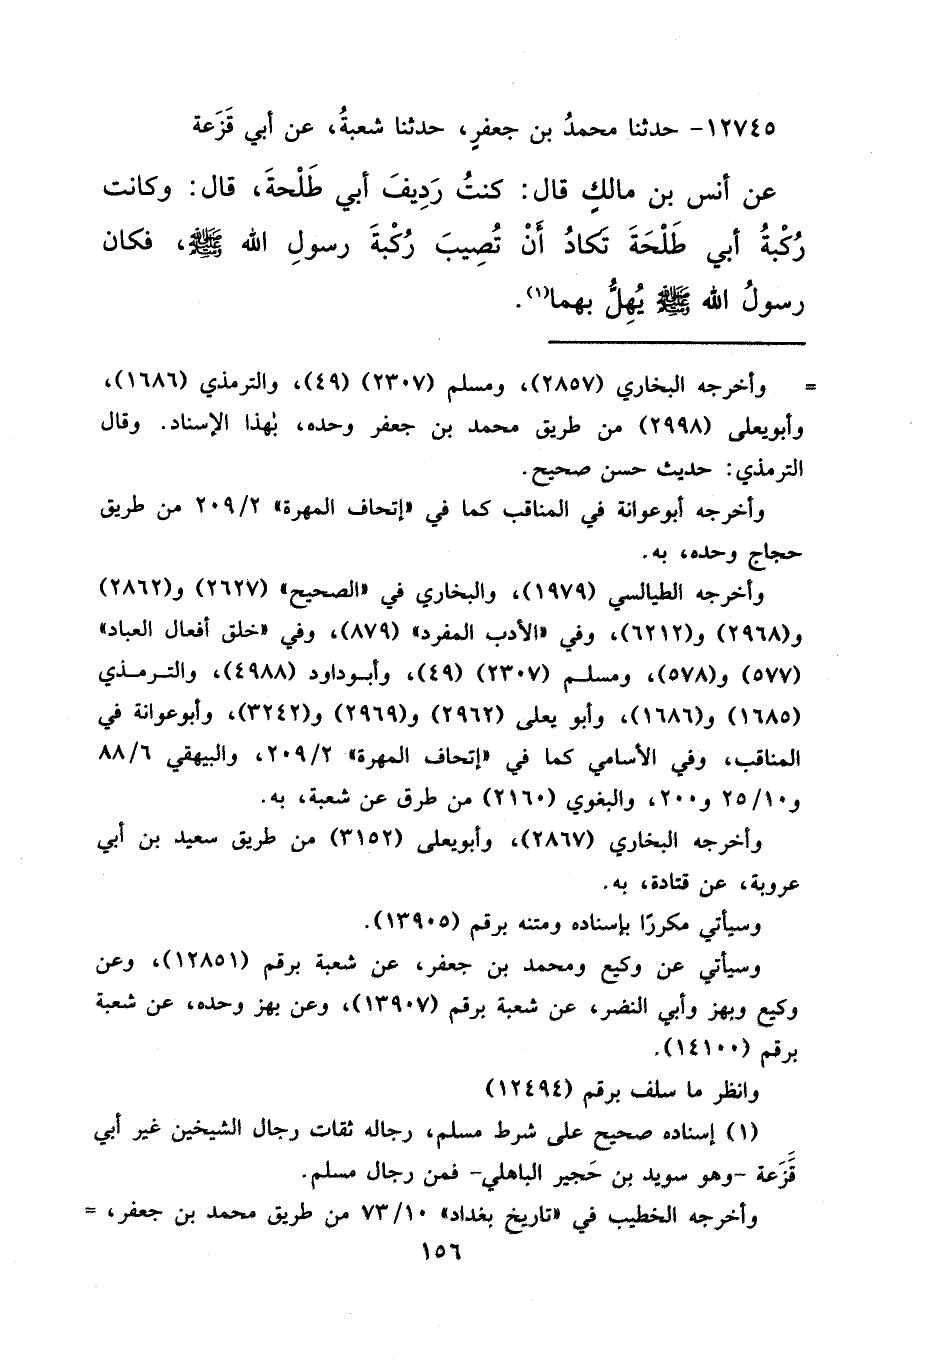 ١٢٧٤٥- حدثنا محمدُ بن جعفرٍ، حدثنا شعبةُ، عن أبي قَزَعة
عن أنس بن مالكٍ قال: كنتُ رَدِيفَ أبي طَلْحةَ، قال: وكانت
رُكْبةُ أبي طَلْحَةَ تَكادُ أَنْ تُصِيبَ رُكْبةَ رسولِ الله ﷺ، فكان
رسولُ الله ﷺ يُهِلُّ بهما(١).
= وأخرجه البخاري (٢٨٥٧)، ومسلم (٢٣٠٧) (٤٩)، والترمذي (١٦٨٦)،
وأبويعلى (٢٩٩٨) من طريق محمد بن جعفر وحده، بهٰذا الإسناد. وقال
الترمذي: حديث حسن صحيح.
وأخرجه أبوعوانة في المناقب كما في «إتحاف المهرة» ٢٠٩/٢ من طريق
حجاج وحده، به.
وأخرجه الطيالسي (١٩٧٩)، والبخاري في «الصحيح» (٢٦٢٧) و(٢٨٦٢)
و(٢٩٦٨) و(٦٢١٢)، وفي «الأدب المفرد» (٨٧٩)، وفي «خلق أفعال العباد»
(٥٧٧) و(٥٧٨)، ومسلم (٢٣٠٧) (٤٩)، وأبوداود (٤٩٨٨)، والترمذي
(١٦٨٥) و(١٦٨٦)، وأبو يعلى (٢٩٦٢) و(٢٩٦٩) و(٣٢٤٢)، وأبوعوانة في
المناقب، وفي الأسامي كما في «إتحاف المهرة» ٢٠٩/٢، والبيهقي ٨٨/٦
و٢٥/١٠ و٢٠٠، والبغوي (٢١٦٠) من طرق عن شعبة، به.
وأخرجه البخاري (٢٨٦٧)، وأبويعلى (٣١٥٢) من طريق سعيد بن أبي
عروبة، عن قتادة، به.
وسيأتي مكررًا بإسناده ومتنه برقم (١٣٩٠٥).
وسيأتي عن وكيع ومحمد بن جعفر، عن شعبة برقم (١٢٨٥١)، وعن
وكيع وبهز وأبي النضر، عن شعبة برقم (١٣٩٠٧)، وعن بهز وحده، عن شعبة
برقم (١٤١٠٠).
وانظر ما سلف برقم (١٢٤٩٤)
(١) إسناده صحيح على شرط مسلم، رجاله ثقات رجال الشيخين غير أبي
قَزَعة -وهو سويد بن حَجير الباهلي- فمن رجال مسلم.
وأخرجه الخطيب في «تاريخ بغداد» ٧٣/١٠ من طريق محمد بن جعفر، =
١٥٦